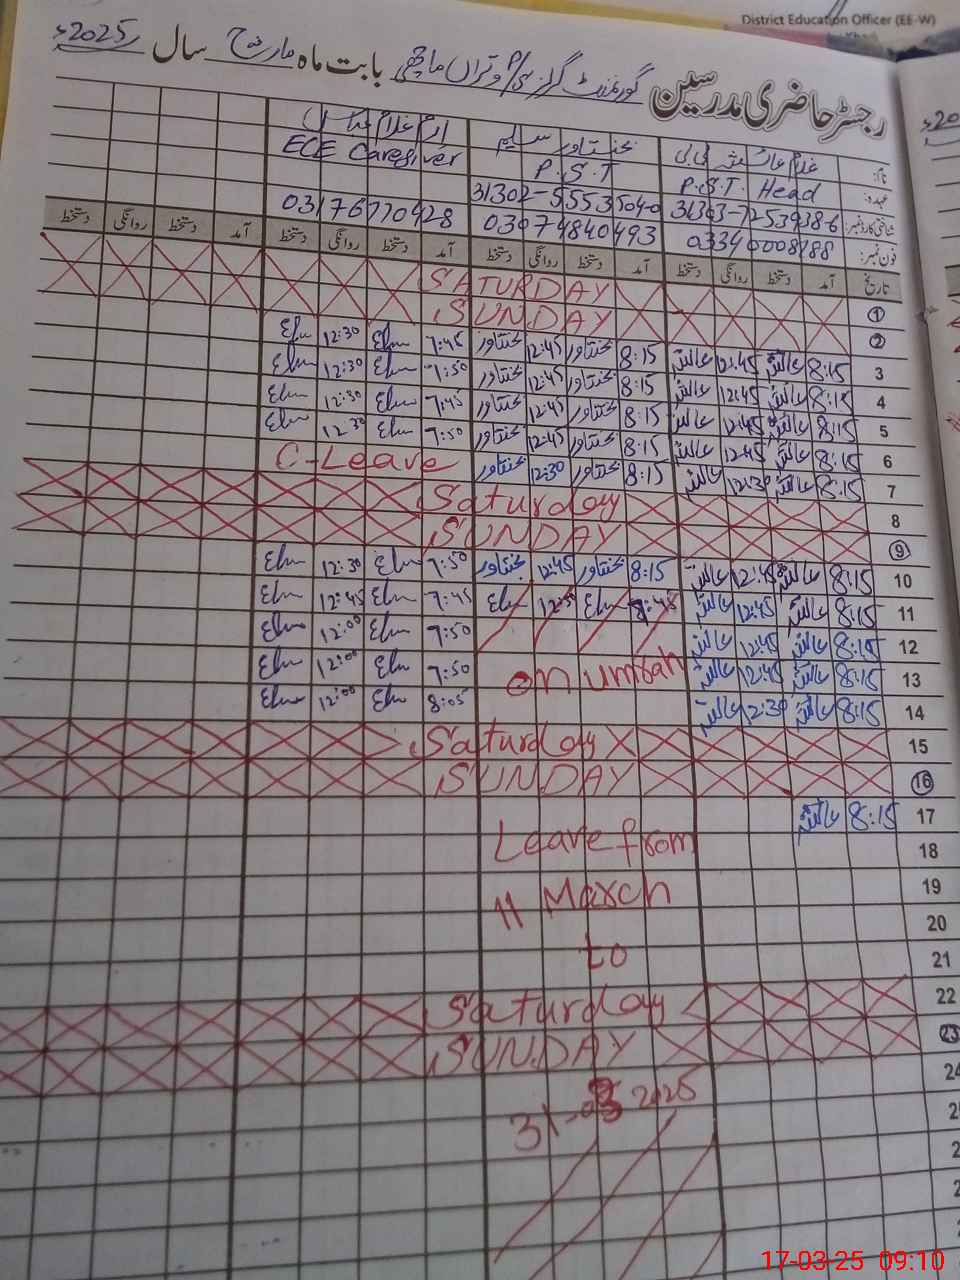 District Education Officer (EE-W)
رجسٹر حاضری مدرسین گورنمنٹ گرلز پی/س وتراں ماچھی بابت ماہ مارچ سال 2025ء
نام: غلام عائشہ بی بی بختاور سلیم ارم غلام عباس
عہدہ: P.S.T. Head P.S.T ECE Caregiver
شناختی کارڈ نمبر: 31302-5553504-0
فون نمبر: 03074840493 03176770428
تاریخ آمد دستخط روانگی دستخط آمد دستخط روانگی دستخط آمد دستخط روانگی دستخط آمد دستخط روانگی دستخط
1 SATURDAY
2 SUNDAY
3 8:15 عائشہ 12:45 عائشہ 8:15 بختاور 12:45 بختاور 7:45 12:30
4 8:15 عائشہ 12:45 عائشہ 8:15 بختاور 12:45 بختاور 7:50 12:30
5 8:15 عائشہ 12:45 عائشہ 8:15 بختاور 12:45 بختاور 7:45 12:30
6 8:15 عائشہ 12:45 عائشہ 8:15 بختاور 12:45 بختاور 7:50 12:30
7 8:15 عائشہ 12:30 عائشہ 8:15 بختاور 12:30 بختاور C-Leave
8 Saturday
9 SUNDAY
10 8:15 عائشہ 12:45 عائشہ 8:15 بختاور 12:45 بختاور 7:50 12:30
11 8:15 عائشہ 12:45 عائشہ 7:45 12:45
12 8:15 عائشہ 12:45 عائشہ 7:50 12:00
13 8:15 عائشہ 12:45 عائشہ on umrah 7:50 12:00
14 8:15 عائشہ 12:30 عائشہ 8:05 12:00
15 Saturday
16 SUNDAY
17 8:15 عائشہ
18 Leave from
19 11 March
20
21 to
22 Saturday
23 SUNDAY
24
31-03-2025
17-03-25 09:10